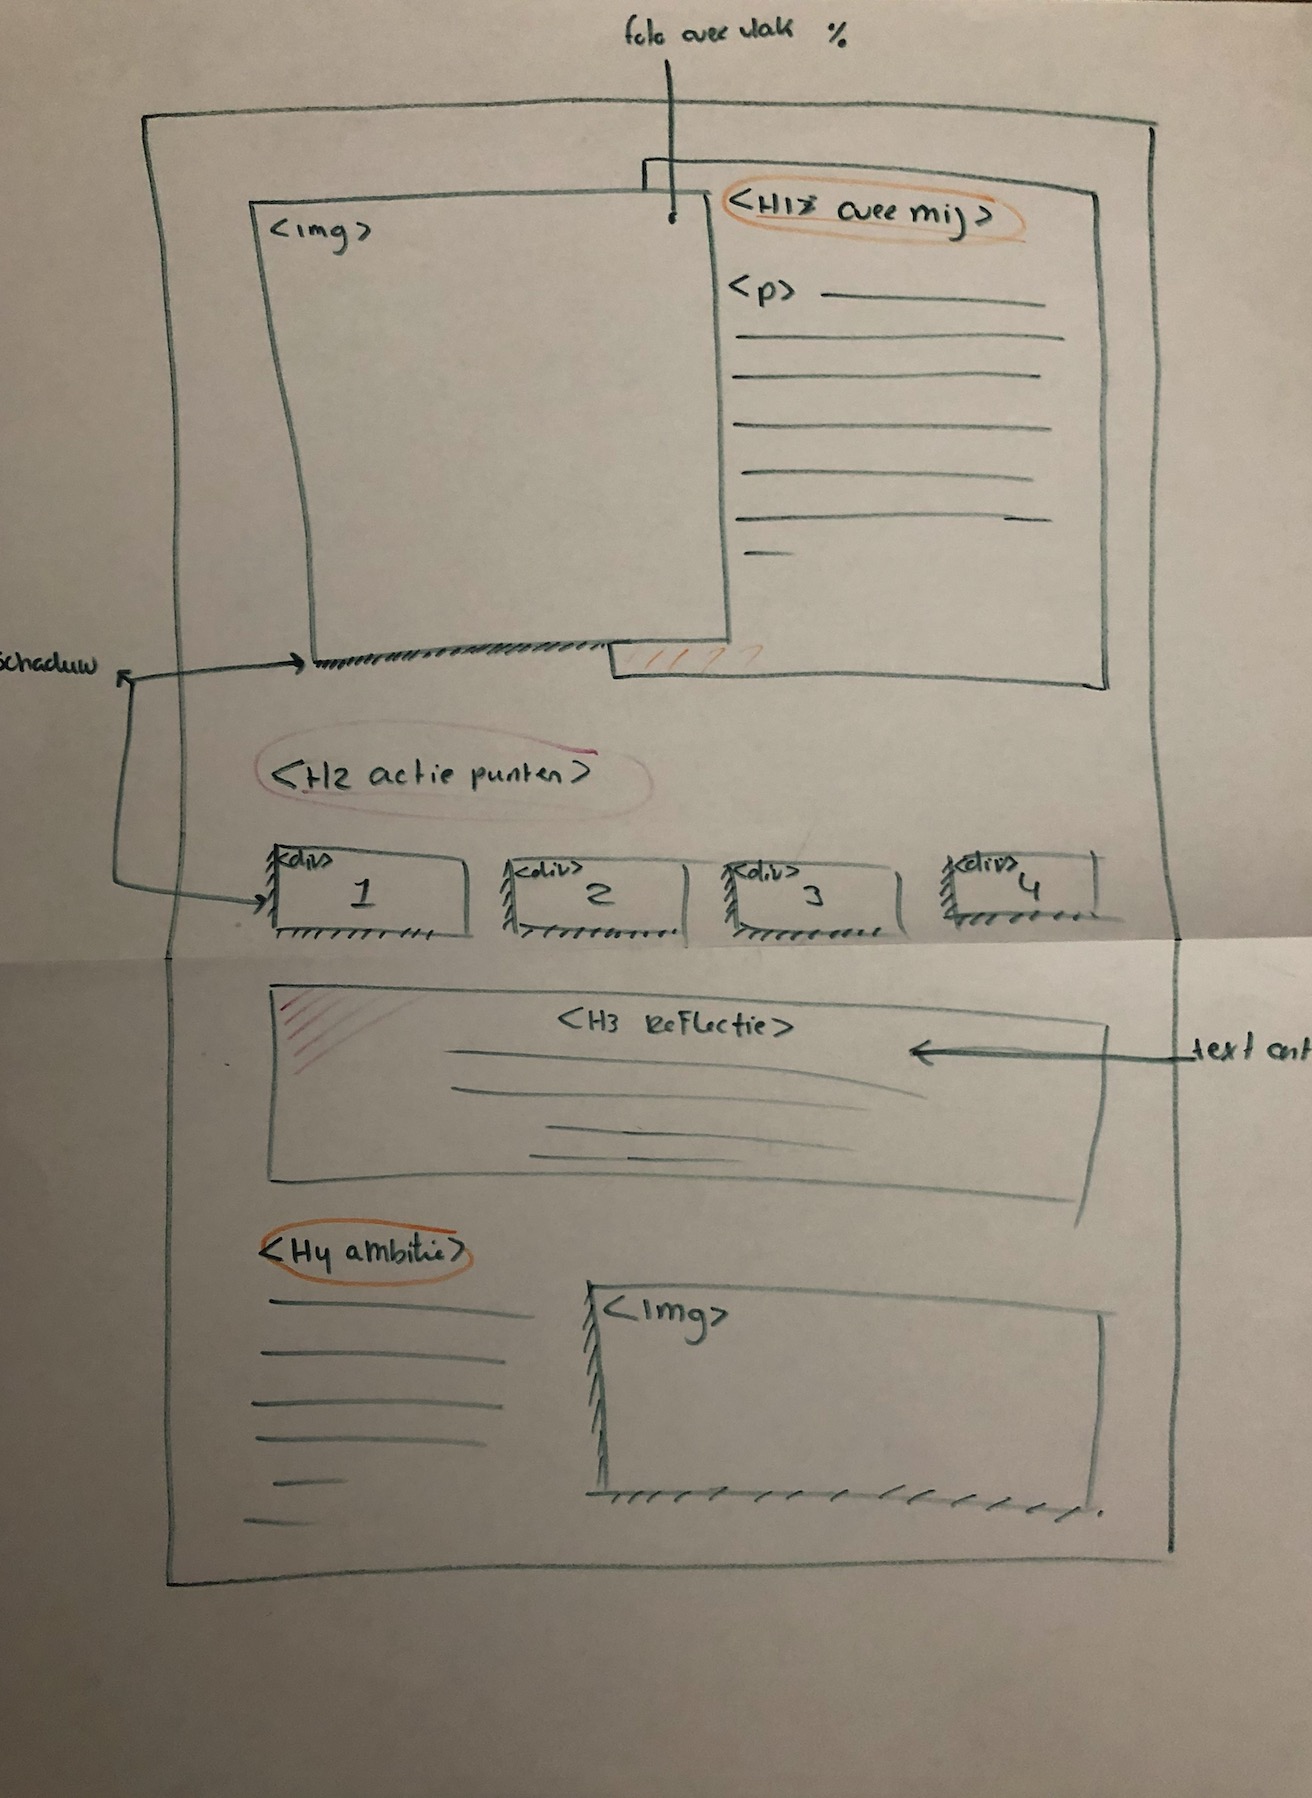 foto over vlak %
<img>
<H1> over mij>
<p>
schaduw
<H2 actie punten>
<div>
1
<div>
2
<div>
3
<div>
4
<H3 Reflectie>
text
<H4 ambitie>
<img>